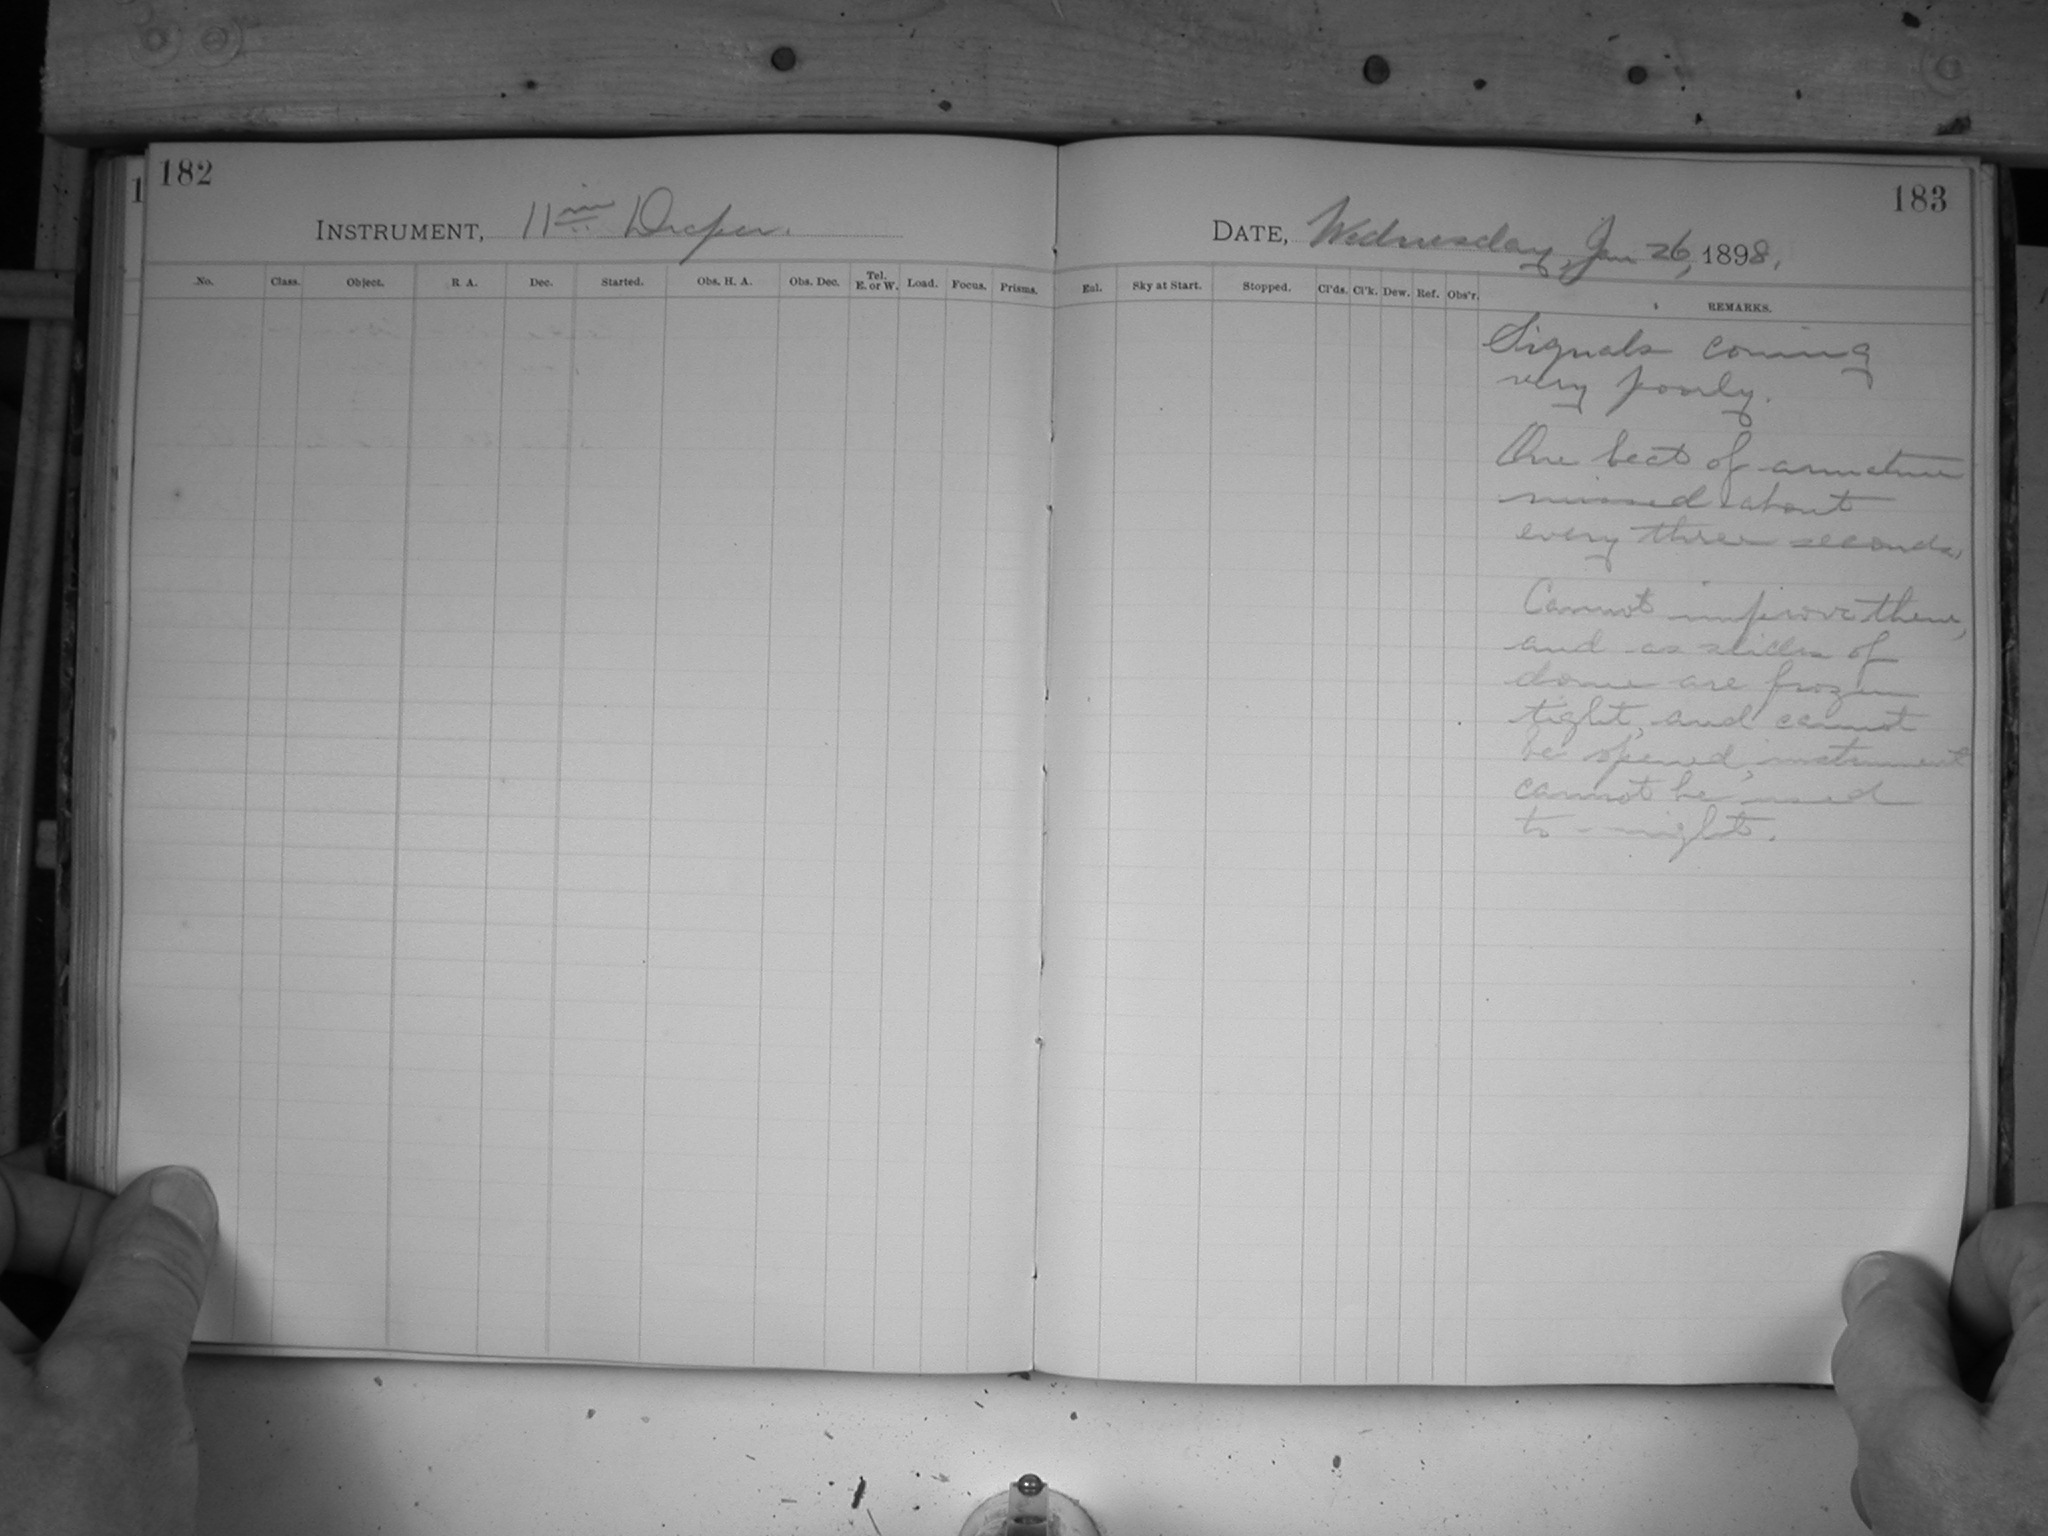 182
1
INSTRUMENT, 11 in Draper.
No. Class. Object. R A. Dec. Started. Obs. H. A. Obs. Dec. Tel. E. or W. Load. Focus. Prisms.
183
DATE, Wednesday, Jan 26, 1898.
Ext. Sky at Start. Stopped. Cl'ds. Cl'k. Dew. Ref. Obs'r. REMARKS.
Signals coming
very poorly.
One beat of armature
missed about
every three seconds.
Cannot improve them,
and as slides of
dome are frozen
tight, and cannot
be opened, instrument
cannot be used
to-night.